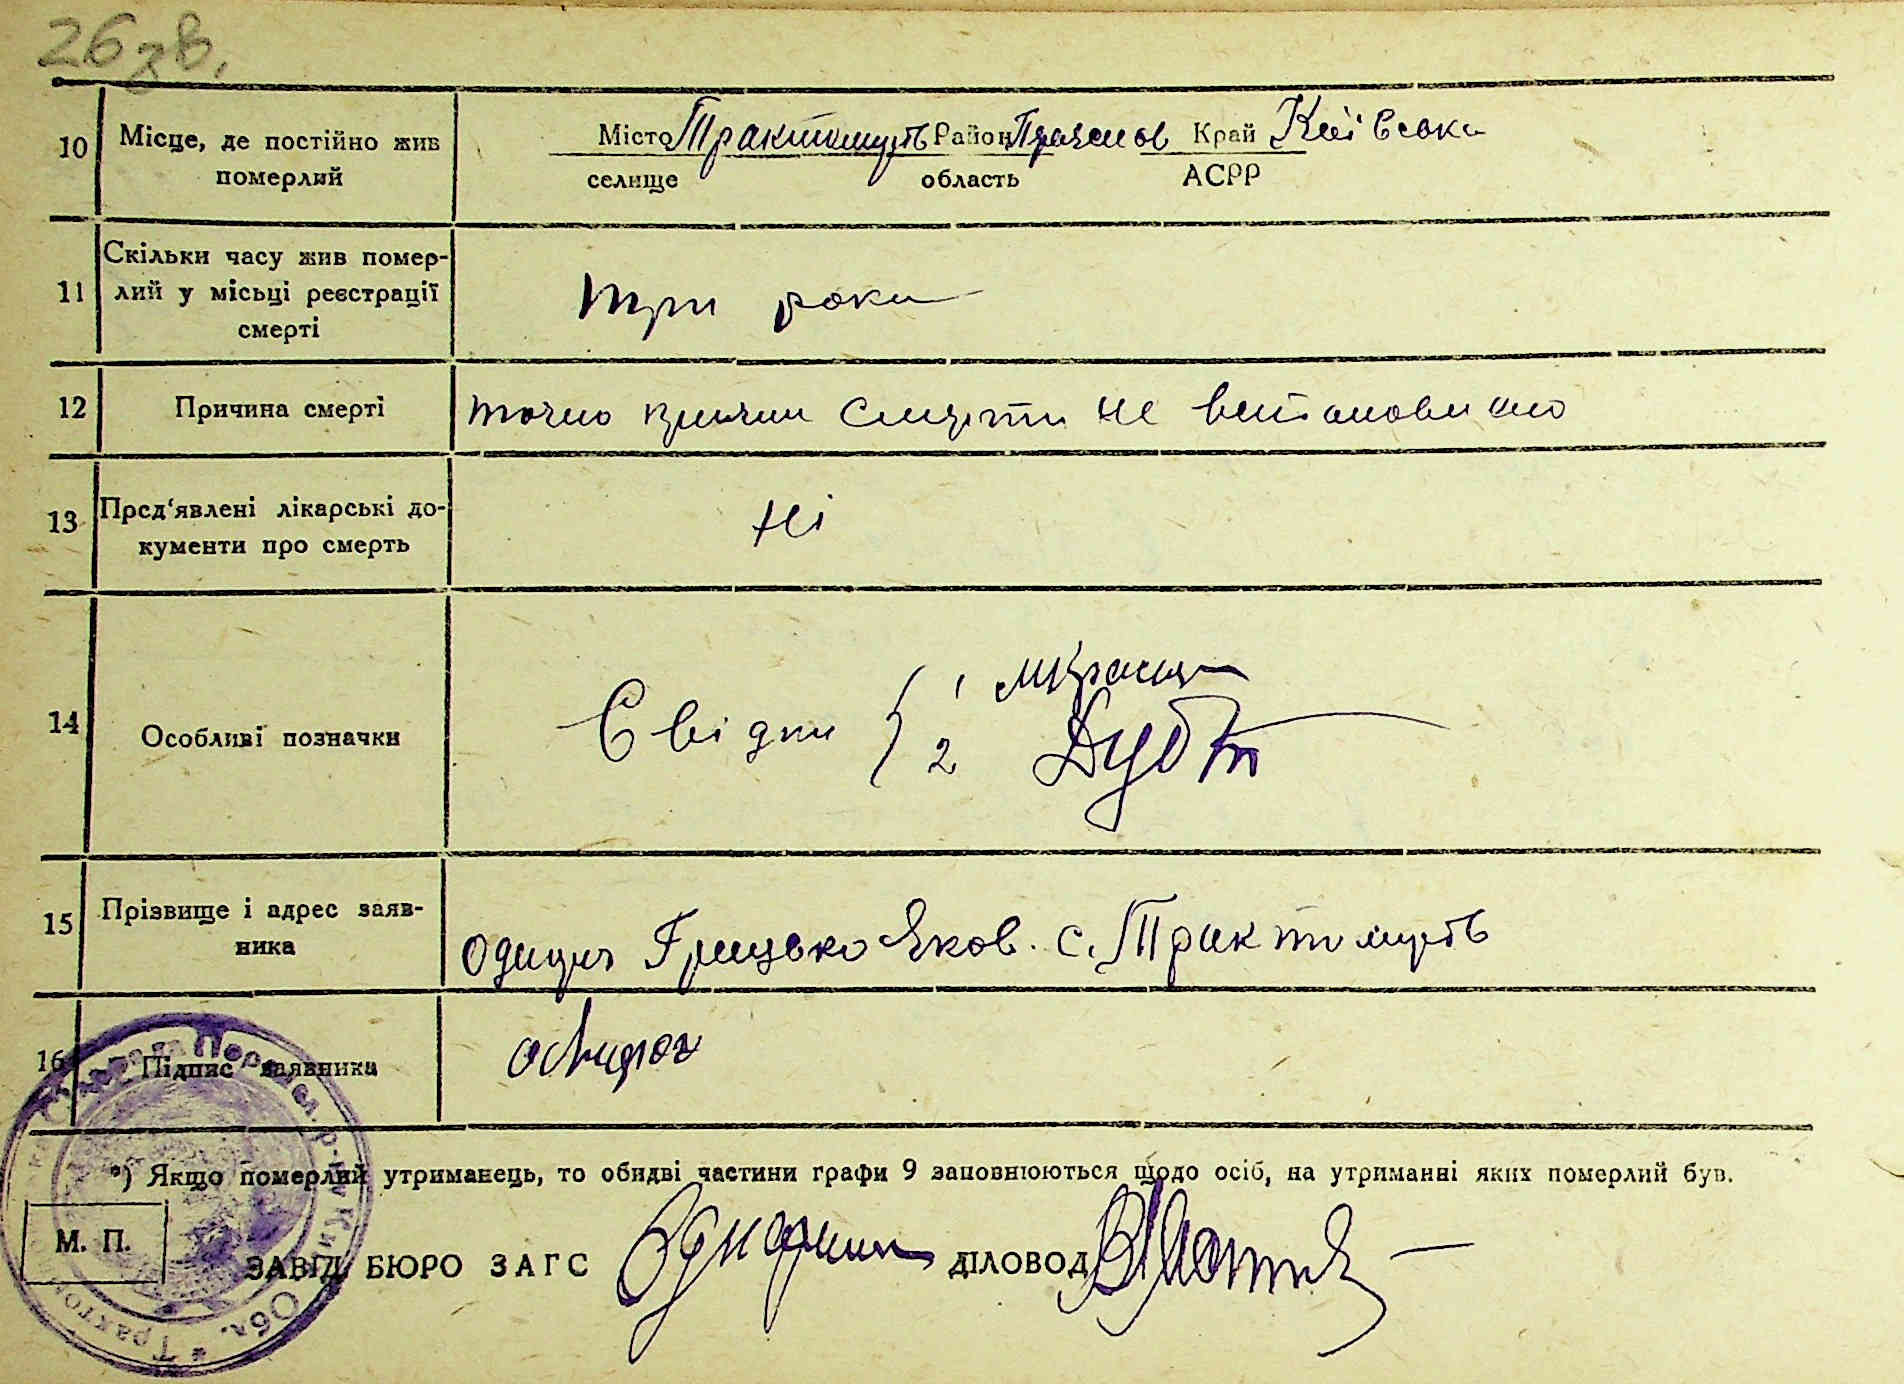 26 зв.
10 Місце, де постійно жив померлий Місто Трактомирь Район Край Київська
селище область АСРР
11 Скільки часу жив помер-
лий у місьці реєстрації
смерті
три роки
12 Причина смерті точно причини смерти не встановлино
13 Пред'явлені лікарські до-
кументи про смерть
Ні
14 Особливі позначки Свідки { 1
2 Дуб
15 Прізвище і адрес заяв-
ника
Одинич Грицько Яков. с. Трактомирь
16 Підпис заявника
*) Якщо померлий утриманець, то обидві частини графи 9 заповнюються щодо осіб, на утриманні яких померлий був.
М. П.
ЗАВІД. БЮРО ЗАГС ДІЛОВОД